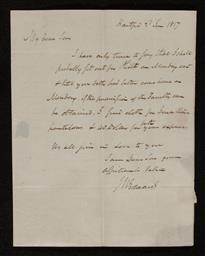 Hartford 2d Jan 1817
My dear Son
I have only time to say that I shall
probably set out for North on Monday next
& hope you both had better come home on
Monday, if the permission of the Faculty can
be obtained. I send cloth for
pantaloons & 20 Dollars for your expence
both
We all join in Love to you
I am Dear Son your
affectionate Father